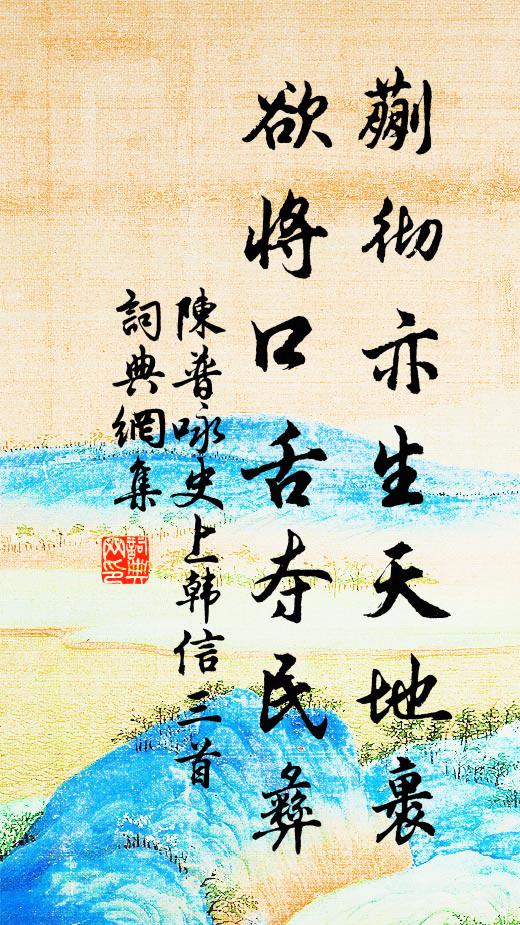 蒯彻亦生天地裏
欲將口舌夺民彝
陳普咏史上韩信三首
詞典網集
詞典
网印